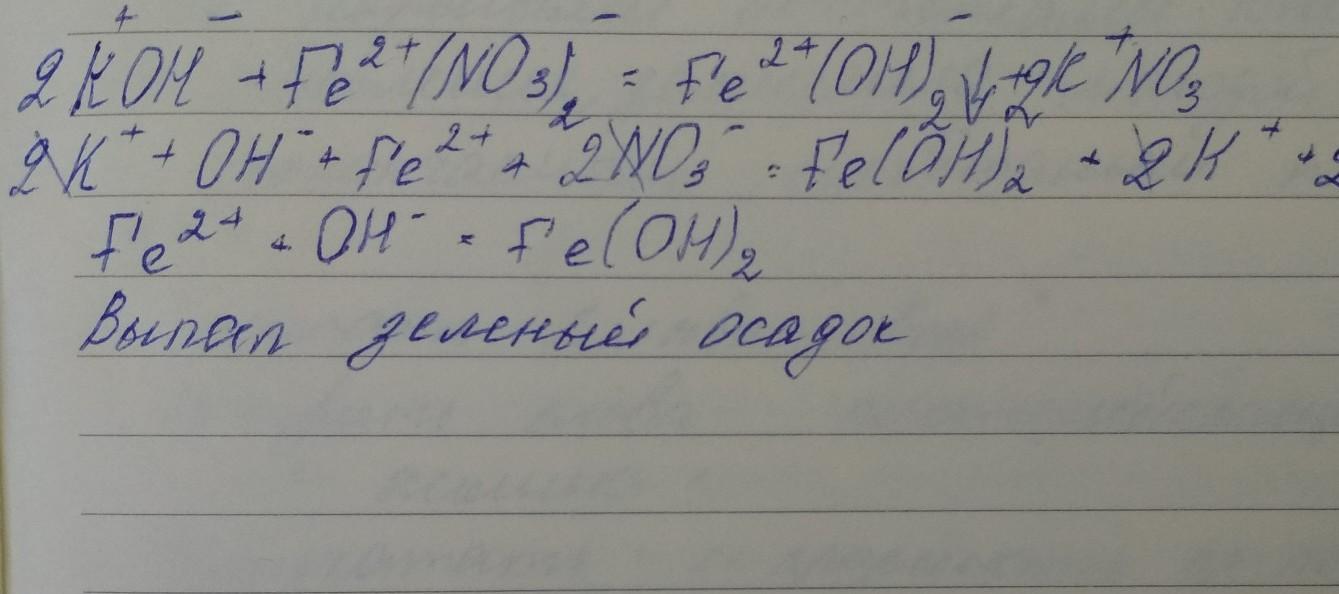 2KOH + Fe²⁺(NO₃)₂⁻ = Fe²⁺(OH)₂⁻↓ + 2K⁺NO₃
2K⁺ + OH⁻ + Fe²⁺ + 2NO₃⁻ = Fe(OH)₂ + 2K⁺ + 2
Fe²⁺ + OH⁻ = Fe(OH)₂
Выпал зеленый осадок